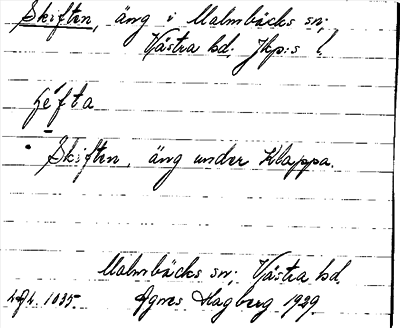 Skiften, äng i Malmbäcks sn;
Västra hd. Jkp:s l
Skiften, äng under Klappa.
Malmbäcks sn; Västra hd.
Agnes Hagberg 1929.